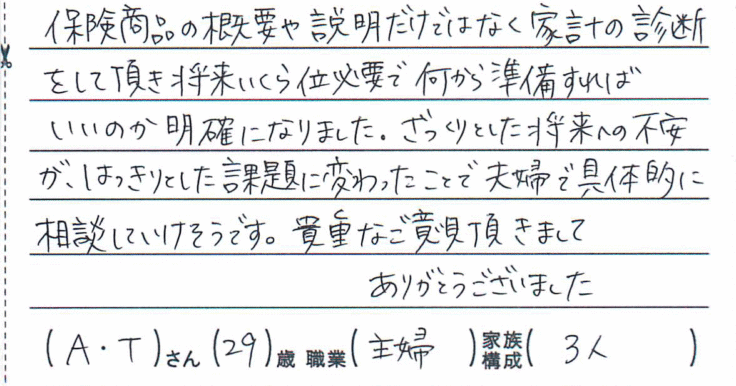 保険商品の概要や説明だけではなく家計の診断
をして頂き将来いくら位必要で何から準備すれば
いいのか明確になりました。ざっくりとした将来への不安
が、はっきりとした課題に変わったことで夫婦で具体的に
相談していけそうです。貴重なご意見頂きまして
ありがとうございました
(A・T)さん(29)歳 職業(主婦)家族構成(3人)